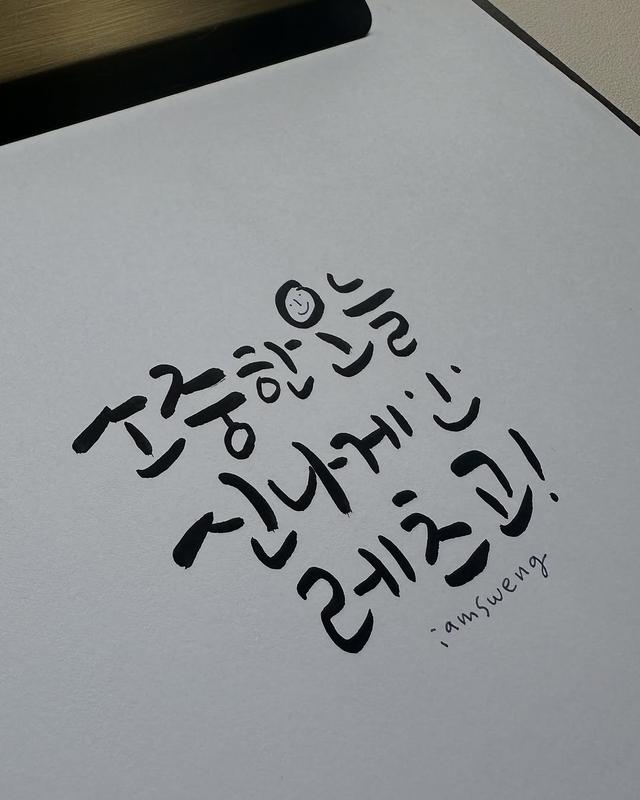 소중한 오늘
신나게
레츠고!
iamsweng